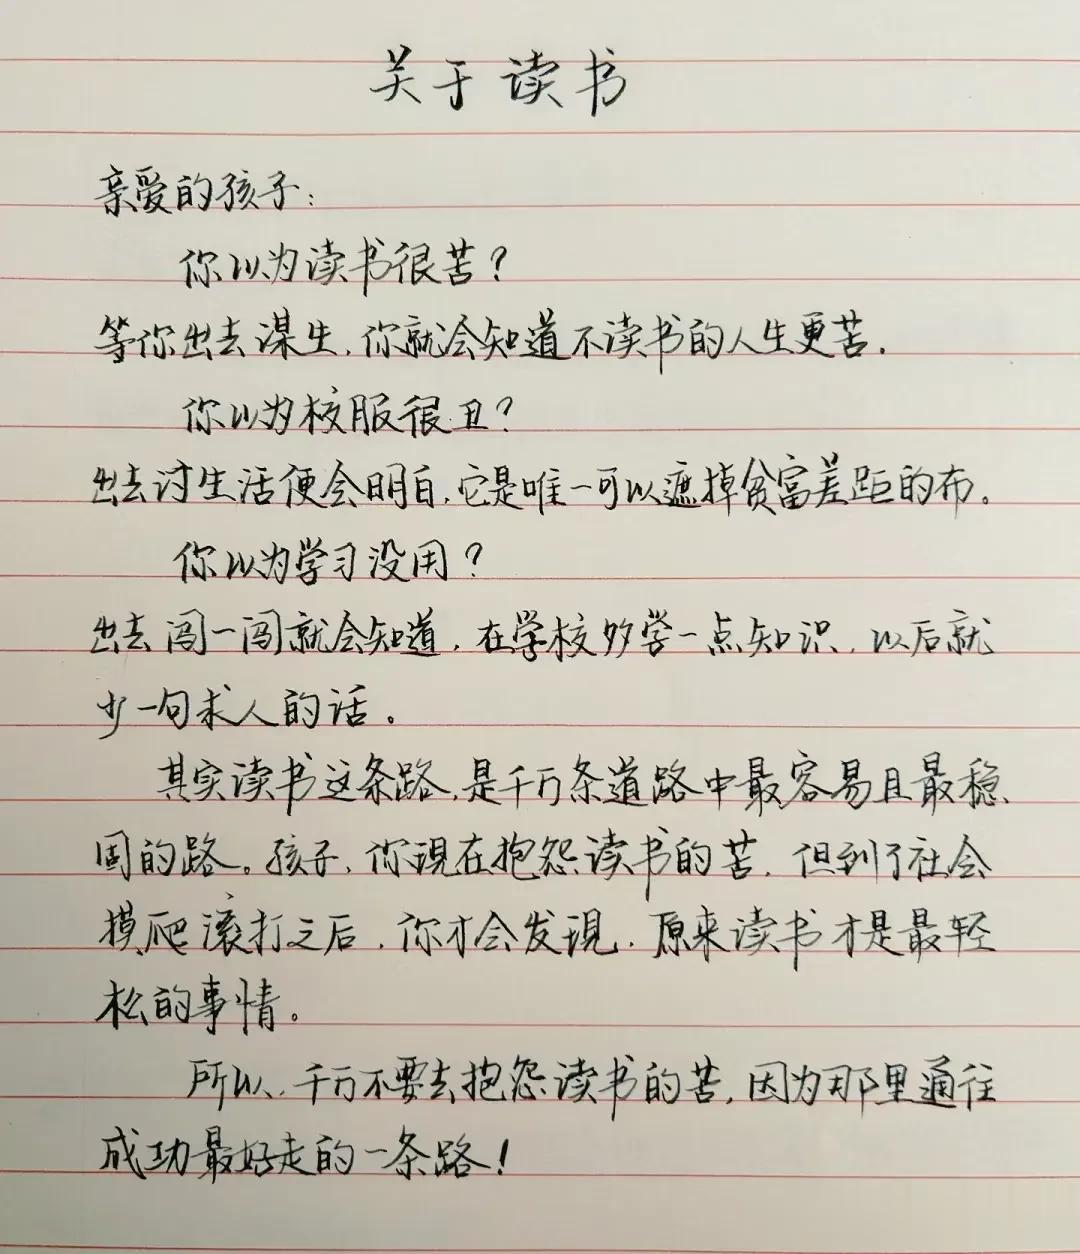 关于读书
亲爱的孩子：
你以为读书很苦？
等你出去谋生，你就会知道不读书的人生更苦.
你以为校服很丑？
出去讨生活便会明白，它是唯一可以遮掉贫富差距的布。
你以为学习没用？
出去闯一闯就会知道，在学校多学一点知识，以后就
少一句求人的话。
其实读书这条路，是千万条道路中最容易且最稳
固的路。孩子，你现在抱怨读书的苦，但到了社会
摸爬滚打之后，你才会发现，原来读书才是最轻
松的事情。
所以，千万不要去抱怨读书的苦，因为那里通往
成功最好走的一条路！